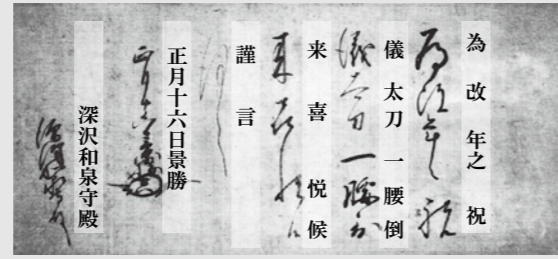 為改年之祝
儀太刀一腰倒
来喜悦候
謹言
正月十六日景勝
深沢和泉守殿